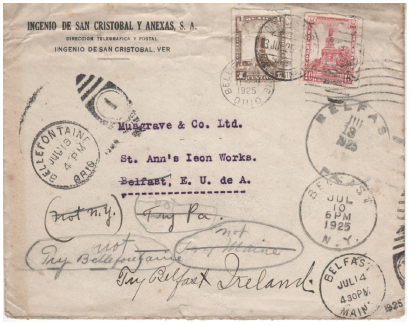 INGENIO DE SAN CRISTOBAL Y ANEXAS, S. A.
DIRECCION TELEGRAFICA Y POSTAL
INGENIO DE SAN CRISTOBAL, VER
1925
OHIO
1
BELLEFONTAINE
JUL 18
4 PM
OHIO
Musgrave & Co. Ltd.
St. Ann's Ieon Works.
Belfast, E. U. de A.
BELFAST
JUL
1925
BELFAST
JUL
10
6 PM
1925
N.Y.
Not N.Y.
Try Pa.
not
not
Try Maine
Try Bellefontaine
Try Belfast Ireland.
BELFAST
JUL 14
4 30 PM
MAINE
1925